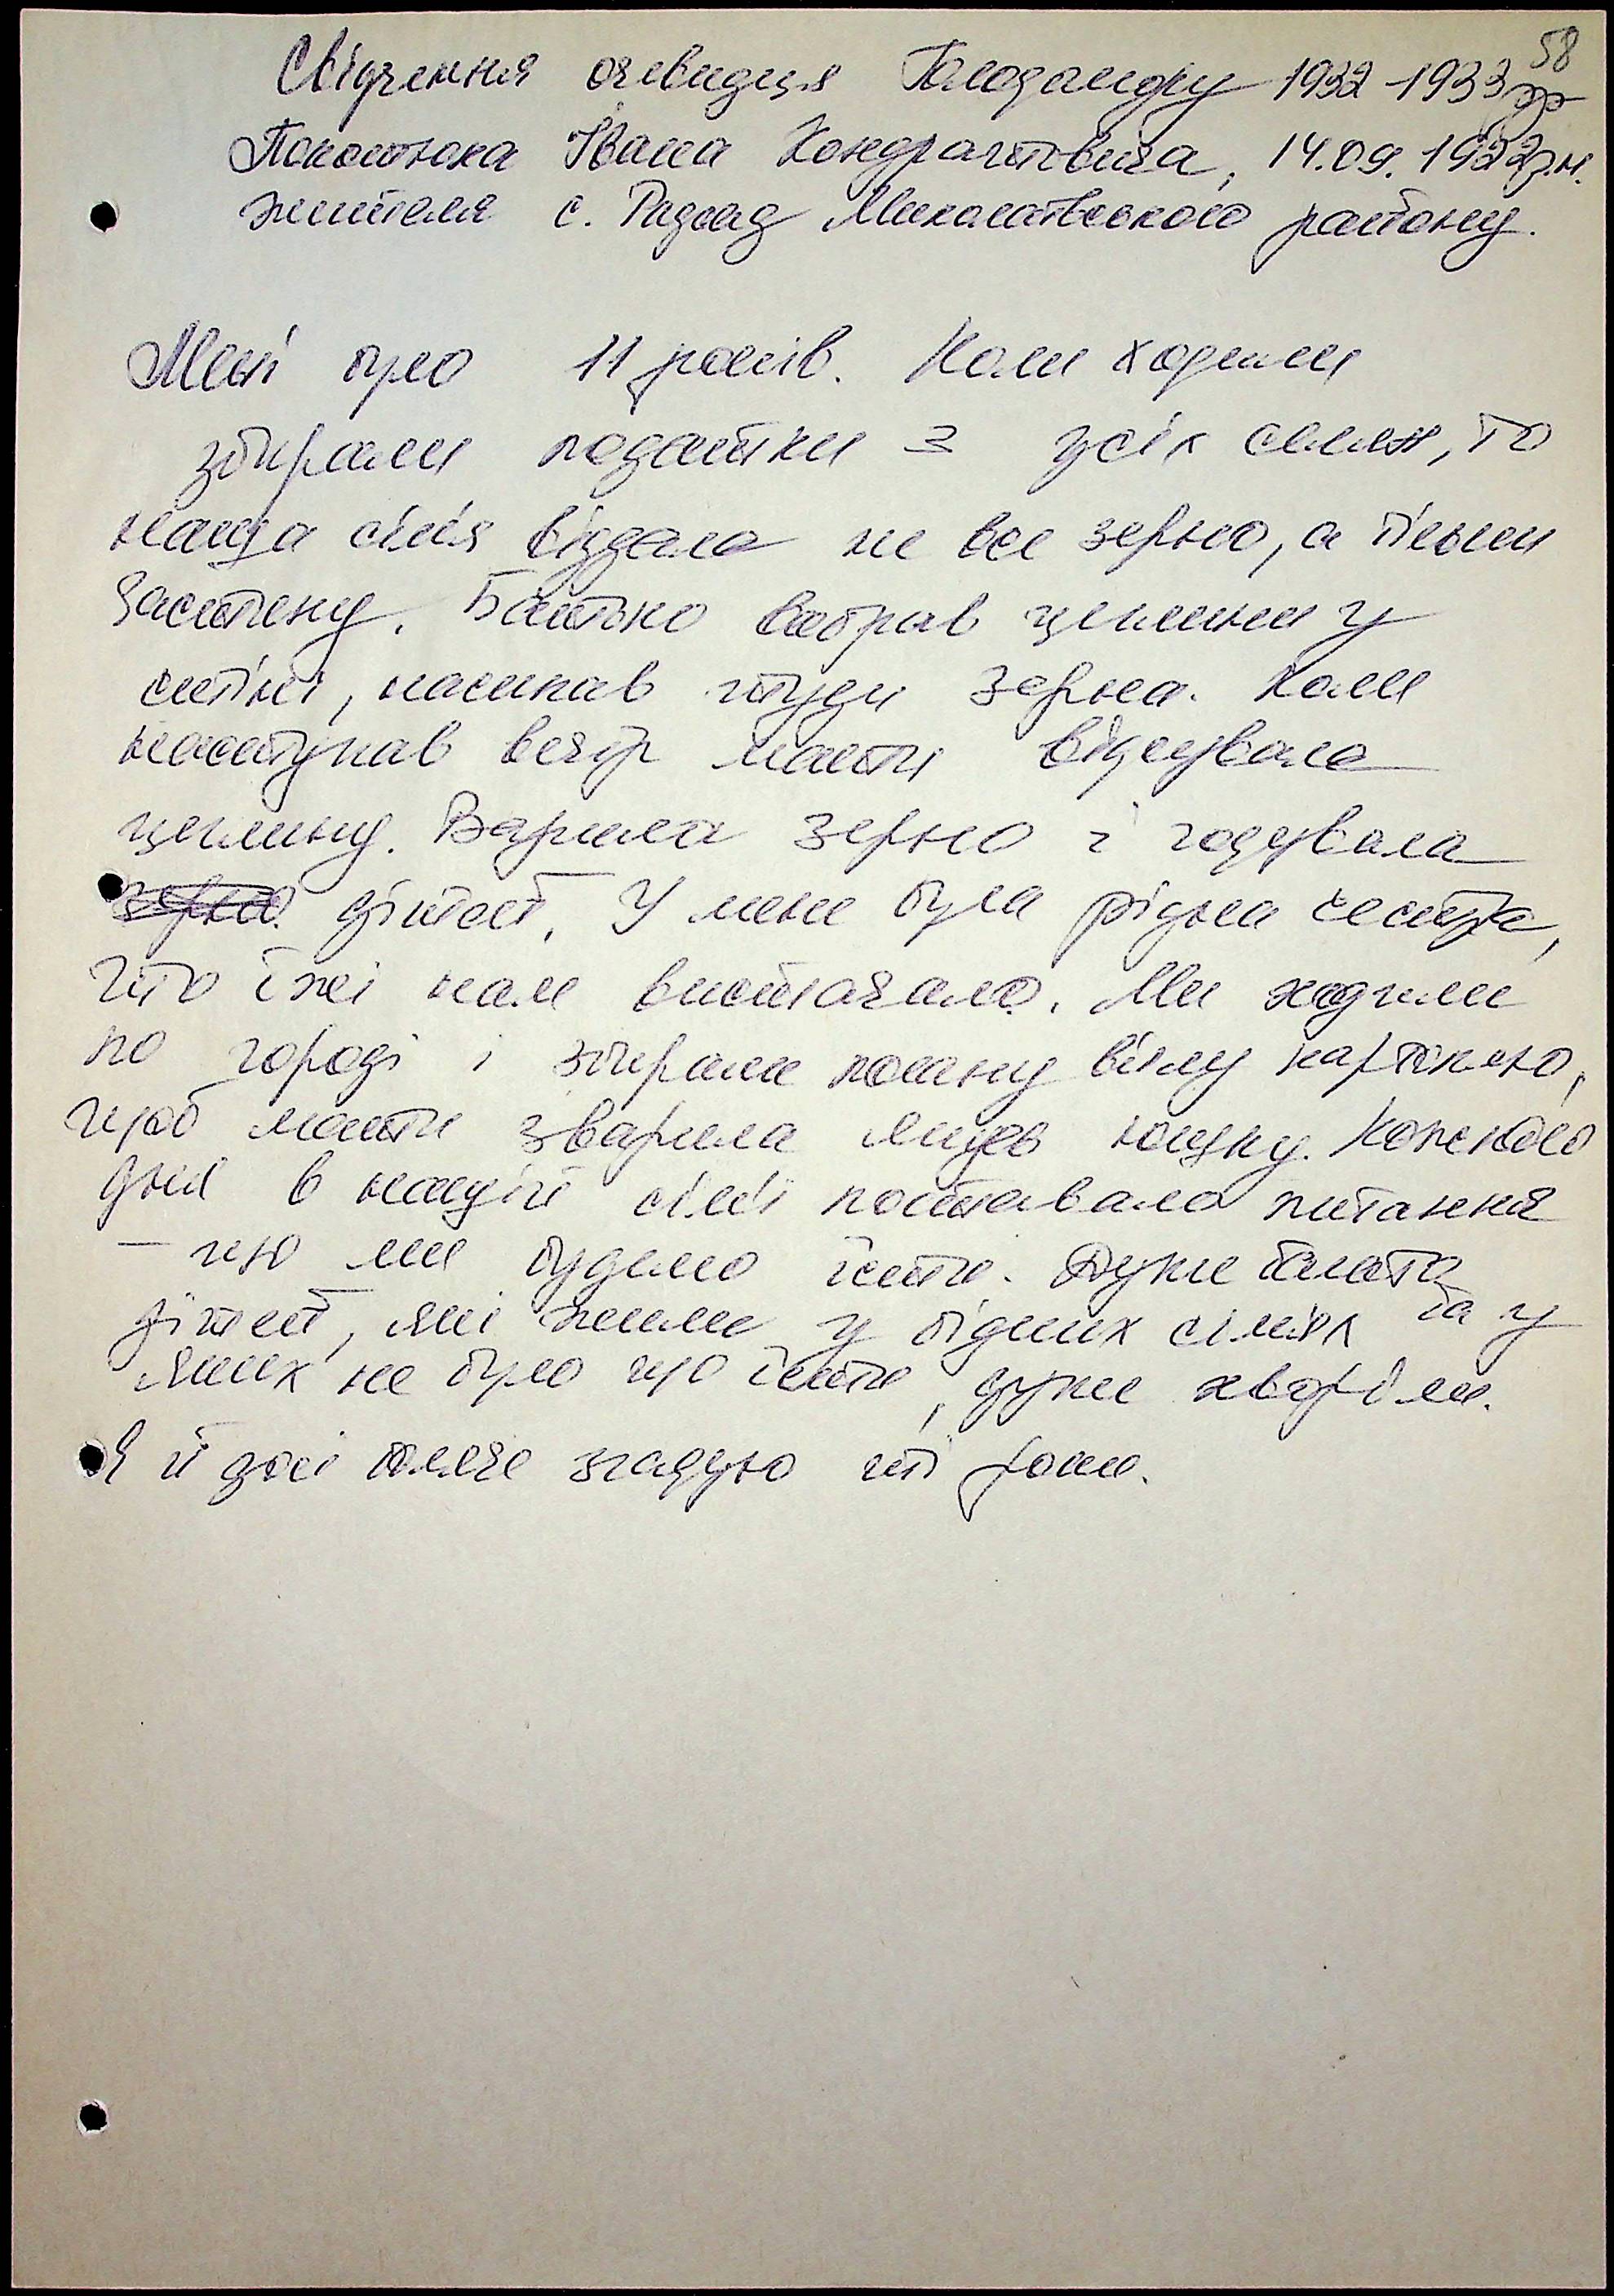 58
Свідчення очевидця Голодомору 1932-1933рр
Івана Кондратовича, 14.09.1922р.н.
жителя с. Радсад Миколаївського району.
Мені було 11 років. Коли ходили
збирали податки з усіх селян, то
наша сім'я віддала не все зерно, а тільки
частину. Батько вибрав цеглини у
стіні, насипав туди зерна. Коли
наступав вечір мати відсувала
цеглину. Варила зерно і годувала
зерно. дітей. У мене була рідна сестра,
то їжі нам вистачало. Ми ходили
по городі і збирали погану білу картоплю,
щоб мати зварила якусь юшку. Кожного
дня в нашій сім'ї поставало питання
– що ми будемо їсти. Дуже багато
дітей, які жили у бідних сім'ях та у
яких не було що їсти, дуже хворіли.
Я й досі згадую ті роки.